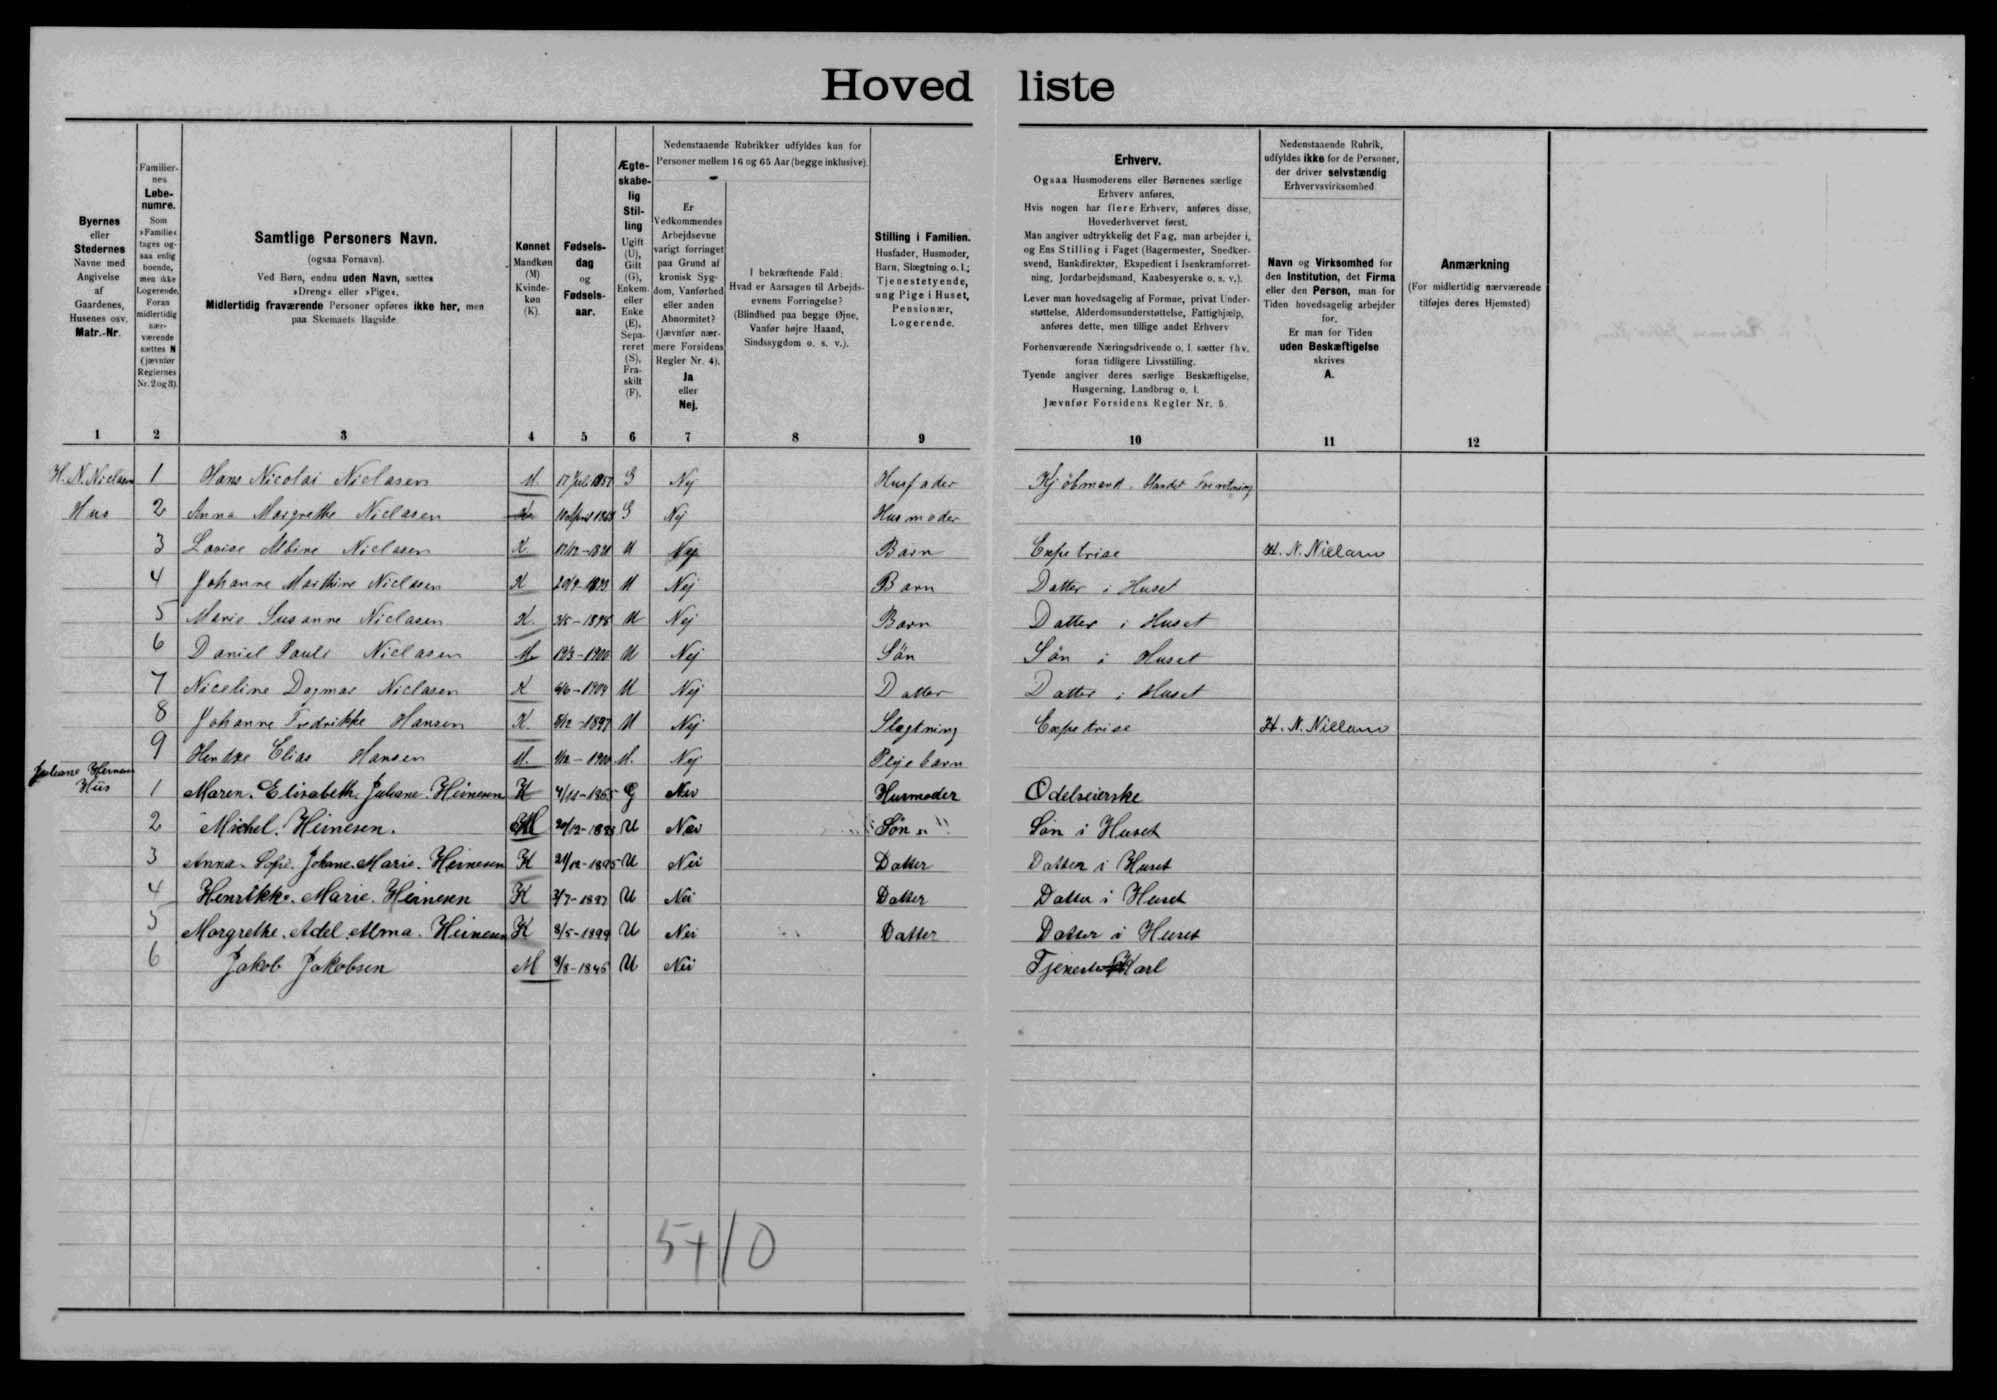 Hoved liste
Byernes
eller
Stedernes
Navne med
Angivelse
af
Gaardenes,
Husenes osv.
Matr.-Nr.
Familier-
nes
Løbe-
numre.
Som
»Familie«
tages og-
saa enlig
boende,
men ikke
Logerende.
Foran
midlertidig
nær-
værende
sættes N
(jævnfør
Reglernes
Nr. 2 og 3).
Samtlige Personers Navn.
(ogsaa Fornavn).
Ved Børn, endnu uden Navn, sættes
»Dreng« eller »Pige«.
Midlertidig fraværende Personer opføres ikke her, men
paa Skemaets Bagside.
Kønnet
Mandkøn
(M)
Kvinde-
køn
(K).
Fødsels-
dag
og
Fødsels-
aar.
Ægte-
skabe-
lig
Stil-
ling
Ugift
(U),
Gift
(G),
Enkem.
eller
Enke
(E),
Sepa-
reret
(S),
Fra-
skilt
(F).
Nedenstaaende Rubrikker udfyldes kun for
Personer mellem 16 og 65 Aar (begge inklusive).
Er
Vedkommendes
Arbejdsevne
varigt forringet
paa Grund af
kronisk Syg-
dom, Vanførhed
eller anden
Abnormitet?
(Jævnfør nær-
mere Forsidens
Regler Nr. 4).
Ja
eller
Nej.
I bekræftende Fald:
Hvad er Aarsagen til Arbejds-
evnens Forringelse?
(Blindhed paa begge Øjne,
Vanfør højre Haand,
Sindssygdom o. s. v.).
Stilling i Familien.
Husfader, Husmoder,
Barn, Slægtning o. l.;
Tjenestetyende,
ung Pige i Huset,
Pensionær,
Logerende.
Erhverv.
Ogsaa Husmoderens eller Børnenes særlige
Erhverv anføres.
Hvis nogen har flere Erhverv, anføres disse,
Hovederhvervet først.
Man angiver udtrykkelig det Fag, man arbejder i,
og Ens Stilling i Faget (Bagermester, Snedker-
svend, Bankdirektør, Ekspedient i Isenkramforret-
ning, Jordarbejdsmand, Kaabesyerske o. s. v.).
Lever man hovedsagelig af Formue, privat Under-
støttelse, Alderdomsunderstøttelse, Fattighjælp,
anføres dette, men tillige andet Erhverv
Forhenværende Næringsdrivende o. l. sætter fhv.
foran tidligere Livsstilling.
Tyende angiver deres særlige Beskæftigelse,
Husgerning, Landbrug o. l.
Jævnfør Forsidens Regler Nr. 5.
Nedenstaaende Rubrik,
udfyldes ikke for de Personer,
der driver selvstændig
Erhvervsvirksomhed
Navn og Virksomhed for
den Institution, det Firma
eller den Person, man for
Tiden hovedsagelig arbejder
for.
Er man for Tiden
uden Beskæftigelse
skrives
A.
Anmærkning
(For midlertidig nærværende
tilføjes deres Hjemsted)
1 2 3 4 5 6 7 8 9 10 11 12
H. N. Niclasen 1 Hans Nicolai Niclasen M. 17 Juli G Nej Husfader Kjöbmand. Handel Forretning
Hus 2 Anna Margrethe Niclasen G Nej Husmoder
3 Lovise Albine Niclasen K U Nej Barn Expetrise H. N. Niclasen
4 Johanne Marthine Niclasen K U Nej Barn Datter i Huset
5 Marie Susanne Niclasen K. U Nej Barn Datter i Huset
6 Daniel Pauli Niclasen M. 19/3-1900 U Nej Sön Sön i Huset
7 Niceline Dagmar Niclasen K 6/6-1904 U Nej Datter Datter i Huset
8 Johanne Fredrikke Hansen K. 5/12-1897 U Nej Slægtning Expetrise H. N. Niclasen
9 Elias Hansen M. Nej Plejebarn
Juliane
Hus 1 Maren. Elisabeth. Juliane. Heinesen K 4/11-1865 G Nei Husmoder Odelseierske
2 Michel. Heinesen. M U Nei Søn Søn i Huset
3 Anna. Sofie. Johane. Marie. Heinesen K 21/12-1895 U Nei Datter Datter i Huset
4 Henrikke. Marie. Heinesen K U Nei Datter Datter i Huset
5 Margrethe. Adel. Alma. Heinesen K 8/5-1899 U Nei Datter Datter i Huset
6 Jakob Jakobsen M 8/8-1846 U Nei Tjeneste Karl
5+10